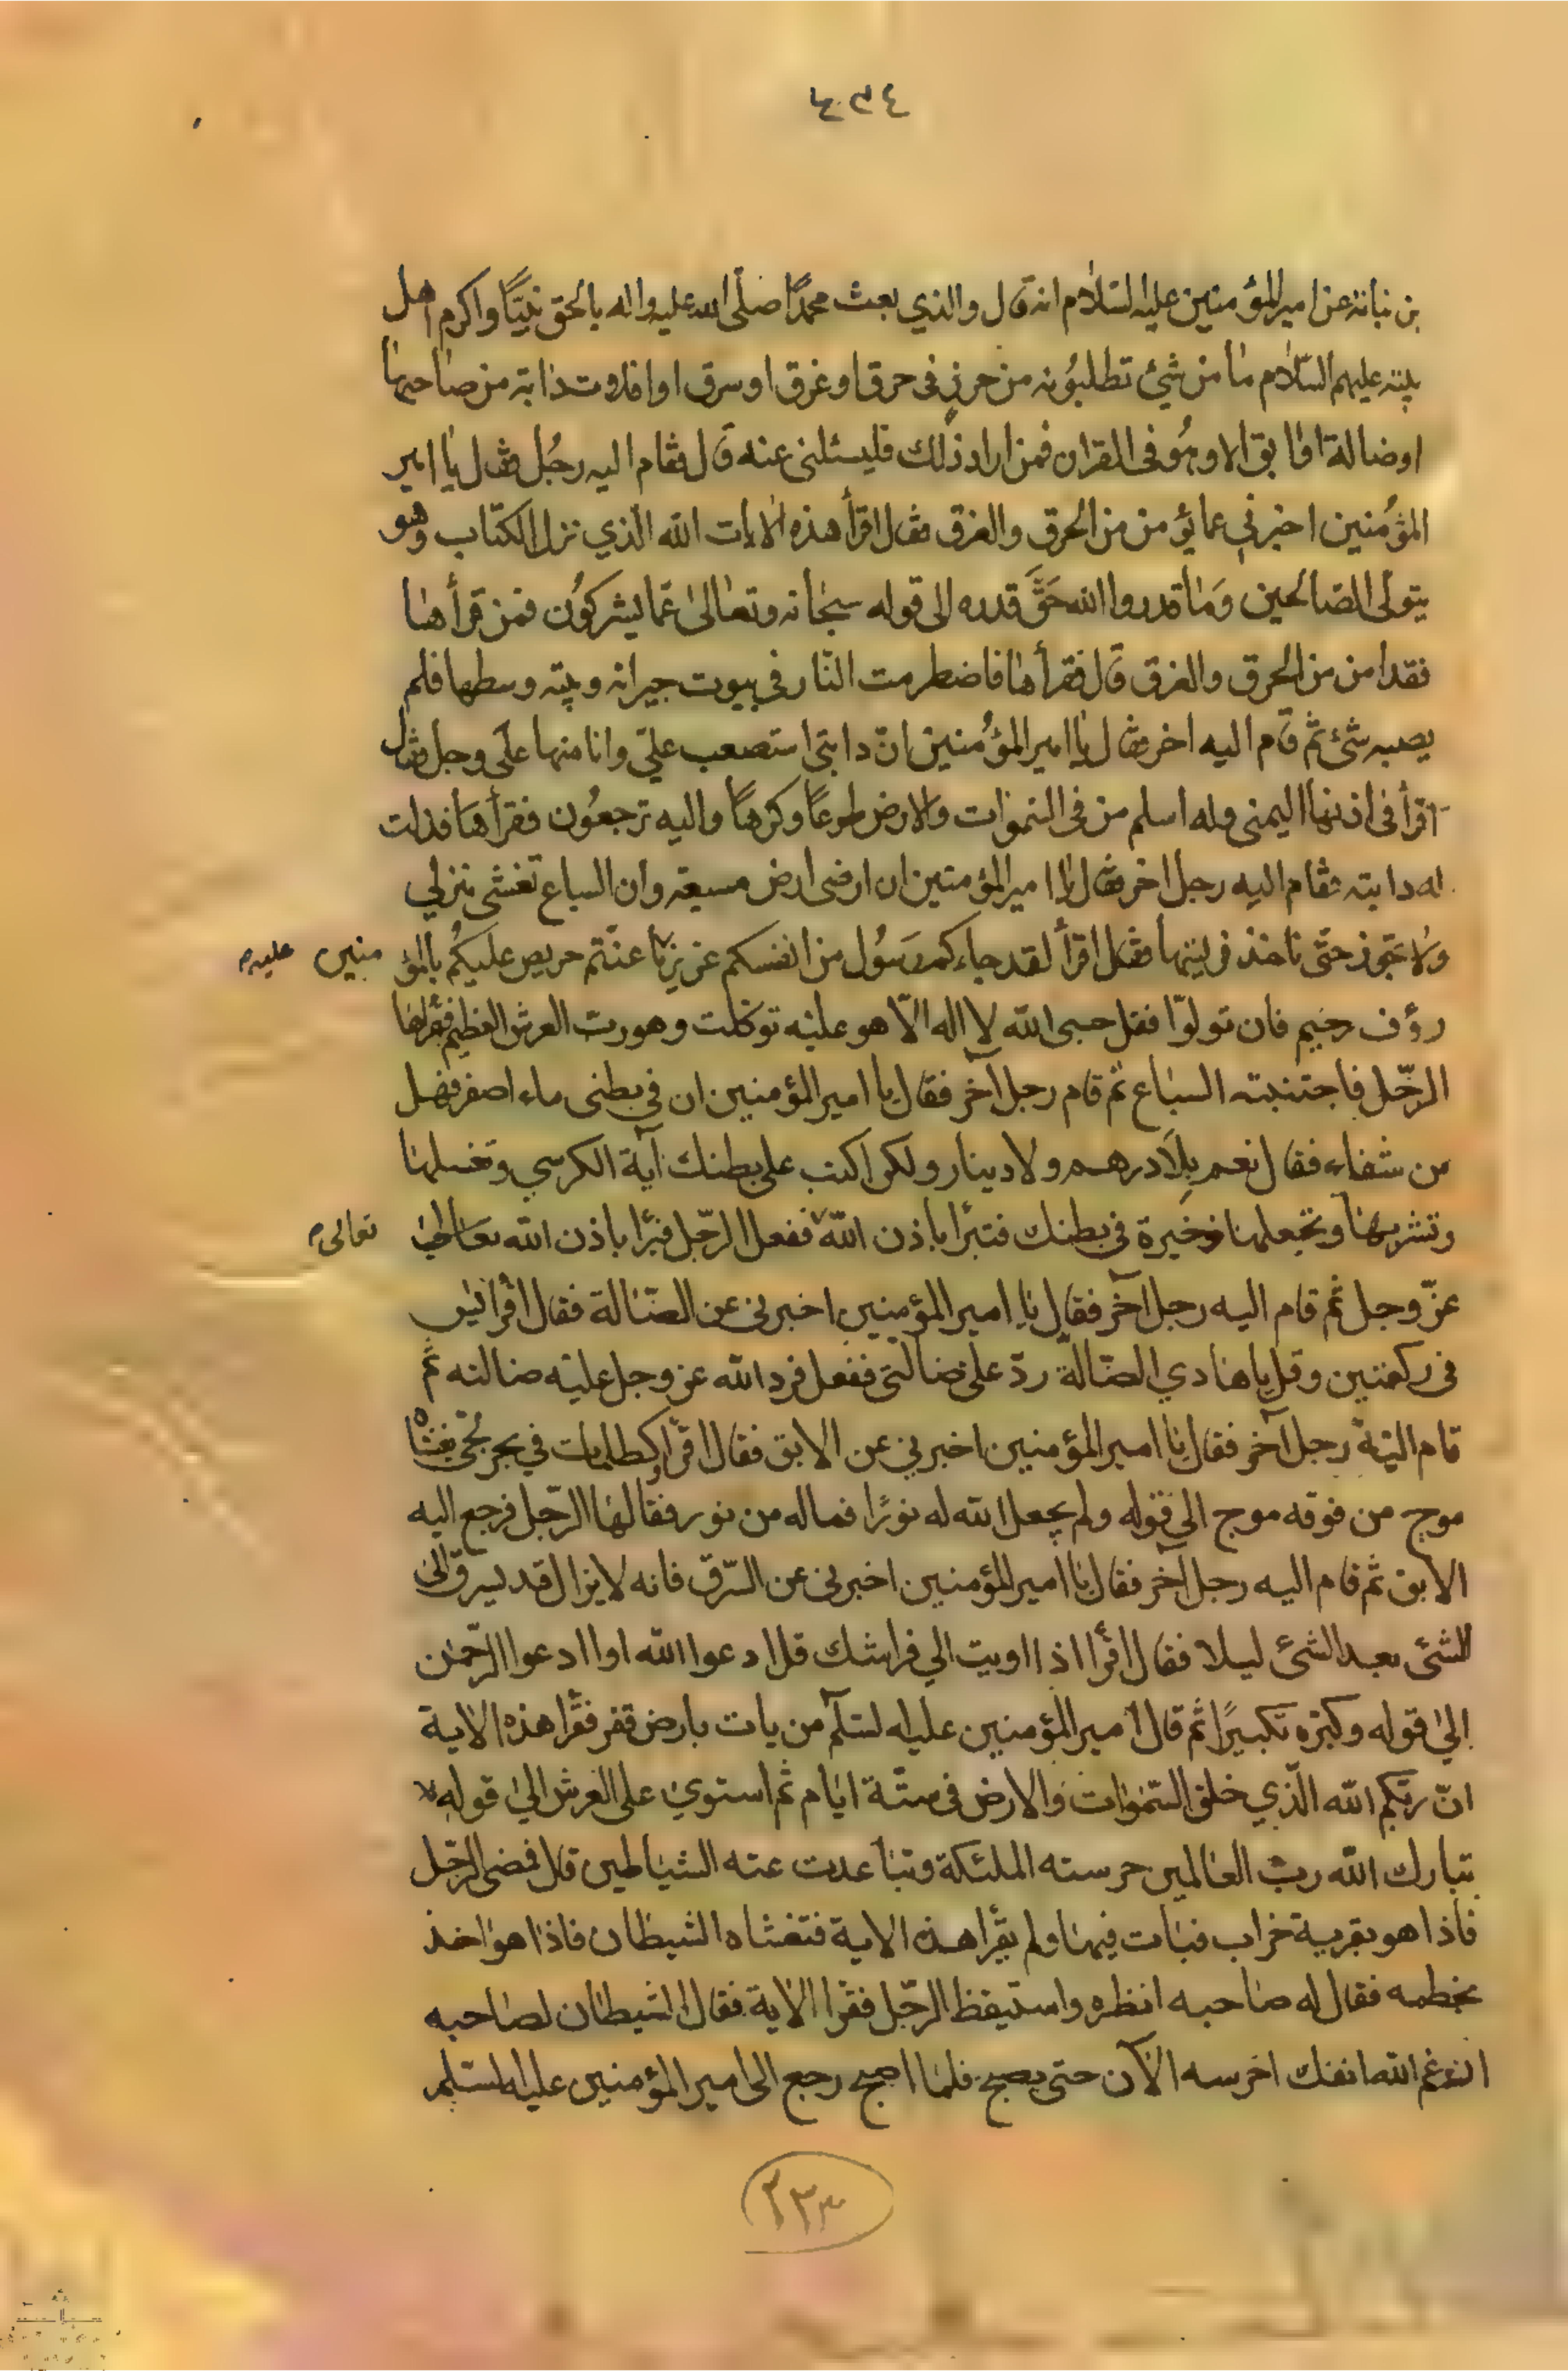 ٤٣٤
بن نباتة عن امير المؤمنين عليه السّلام انه قال والذي بعث محمّدًا صلّى الله عليه واله بالحق نبيًّا واكرم اهل
بيته عليهم السّلام ما من شيئ تطلبُونه من حرزٍ فى حرق او غرق او سرق او افلاوت دابته من صاحبها
او ضالة او ابق الا وهُو فى القران فمن اراد ذلك فليسئلنى عنه قال فقام اليه رجُل فقال يا امير
المؤمنين اخبرني عما يؤمن من الحرق والغرق فقال اقرأ هذه الايات الله الذي نزل الكتاب وهو
يتولى الصالحين وَما قدروا الله حَقَّ قدره الى قوله سبحانه وتعالىٰ عمّا يشركوُن فمن قرأها
فقد امن من الحرق والغرق قال فقرأها فاضطرمت النّار فى بيوت جيرانه وبيته وسطها فلم
يصبه شئ ثم قام اليه اخر فقال يا امير المؤُمنين انّ دابتى استصعب علىّ وانا منها على وجل فقال
اقرأ فى اذنها اليمنى وله اسلم من فى السّموات والارض طوعًا وكرهًا واليه ترجعُون فقرأها فذلت
له دابته فقام اليه رجل اخر فقال يا امير المؤمنين ان ارضى ارض مسبعة وان السباع تغشى منزلي
ولا تجوز حتّى تاخذ فريستها فقال اقرأ لقد جاءكم رَسوُل من انفسكم عزيز ما عنتّم حريص عليكُم بالمؤ
منين عليه
رؤف رحيم فان تولوّا فقل حسبى الله لا اله الّا هو عليْه توكلت وهو رب العرش العظيم فقرأها
الرجّل فاجتنبته السباع ثم قام رجل آخر فقال يا امير المؤمنين ان في بطنى ماء اصفر فهل
من شفاء فقال نعم بِلَا درهم ولا دينار ولكن اكتب على بطنك آية الكرسي وتغسلها
وتشربها وتجعلها ذخيرة فى بطنك فتبرأ باذن الله ففعل الرجّل فبرأ باذن الله تعالىٰ
تعالى
عزّ وجل ثم قام اليه رجل آخر فقال يا امير المؤمنين اخبرنى عن الضّالة فقال اقرأ يٰس
فى ركعتين وقل يا هادي الضّالّة ردّ على ضالتى ففعل فرد الله عز وجل عليْه ضالته ثم
قام اليْه رجل آخر فقال يا امير المؤمنين اخبرني عن الابق فقال اقرأ او كظلمات في بحر لجُّى يغشاه
موج من فوقه موج الى قوله ولم يجعل الله له نورًا فما له من نور فقالها الرّجل فرجع اليه
الابق ثم قام اليه رجل آخر فقال يا امير المؤمنين اخبرنى عن السّرق فانه لا يزال قد يسرق لى
الشئ بعد الشئ ليلا فقال اقرأ اذا اويت الي فراشك قل ادعوا الله او ادعوا الرّحمٰن
الىٰ قوله وكبّره تكبيرًا ثم قال امير المؤمنين عليه السّلام من بات بارض قفر فقرأ هذه الاية
انّ ربّكم الله الّذي خلق السّمٰوات والارض فى ستّة ايّام ثم استوي على العرش الىٰ قوله
تبارك الله ربّ العالمين حرسته الملئكة وتباعدت عنه الشياطين قال فمضى الرجّل
فاذا هو بقرية خراب فبات فيها ولم يقرأ هذه الاية فتغشاه الشيطان فاذا هو اخذ
بخطمه فقال له صاحبه انظره واستيقظ الرجّل فقرا الاية فقال الشيطان لصاحبه
ارغم الله انفك احرسه الآن حتى يصبح فلمّا اصبح رجع الى امير المؤمنين عليه السّلم
٢٢٣